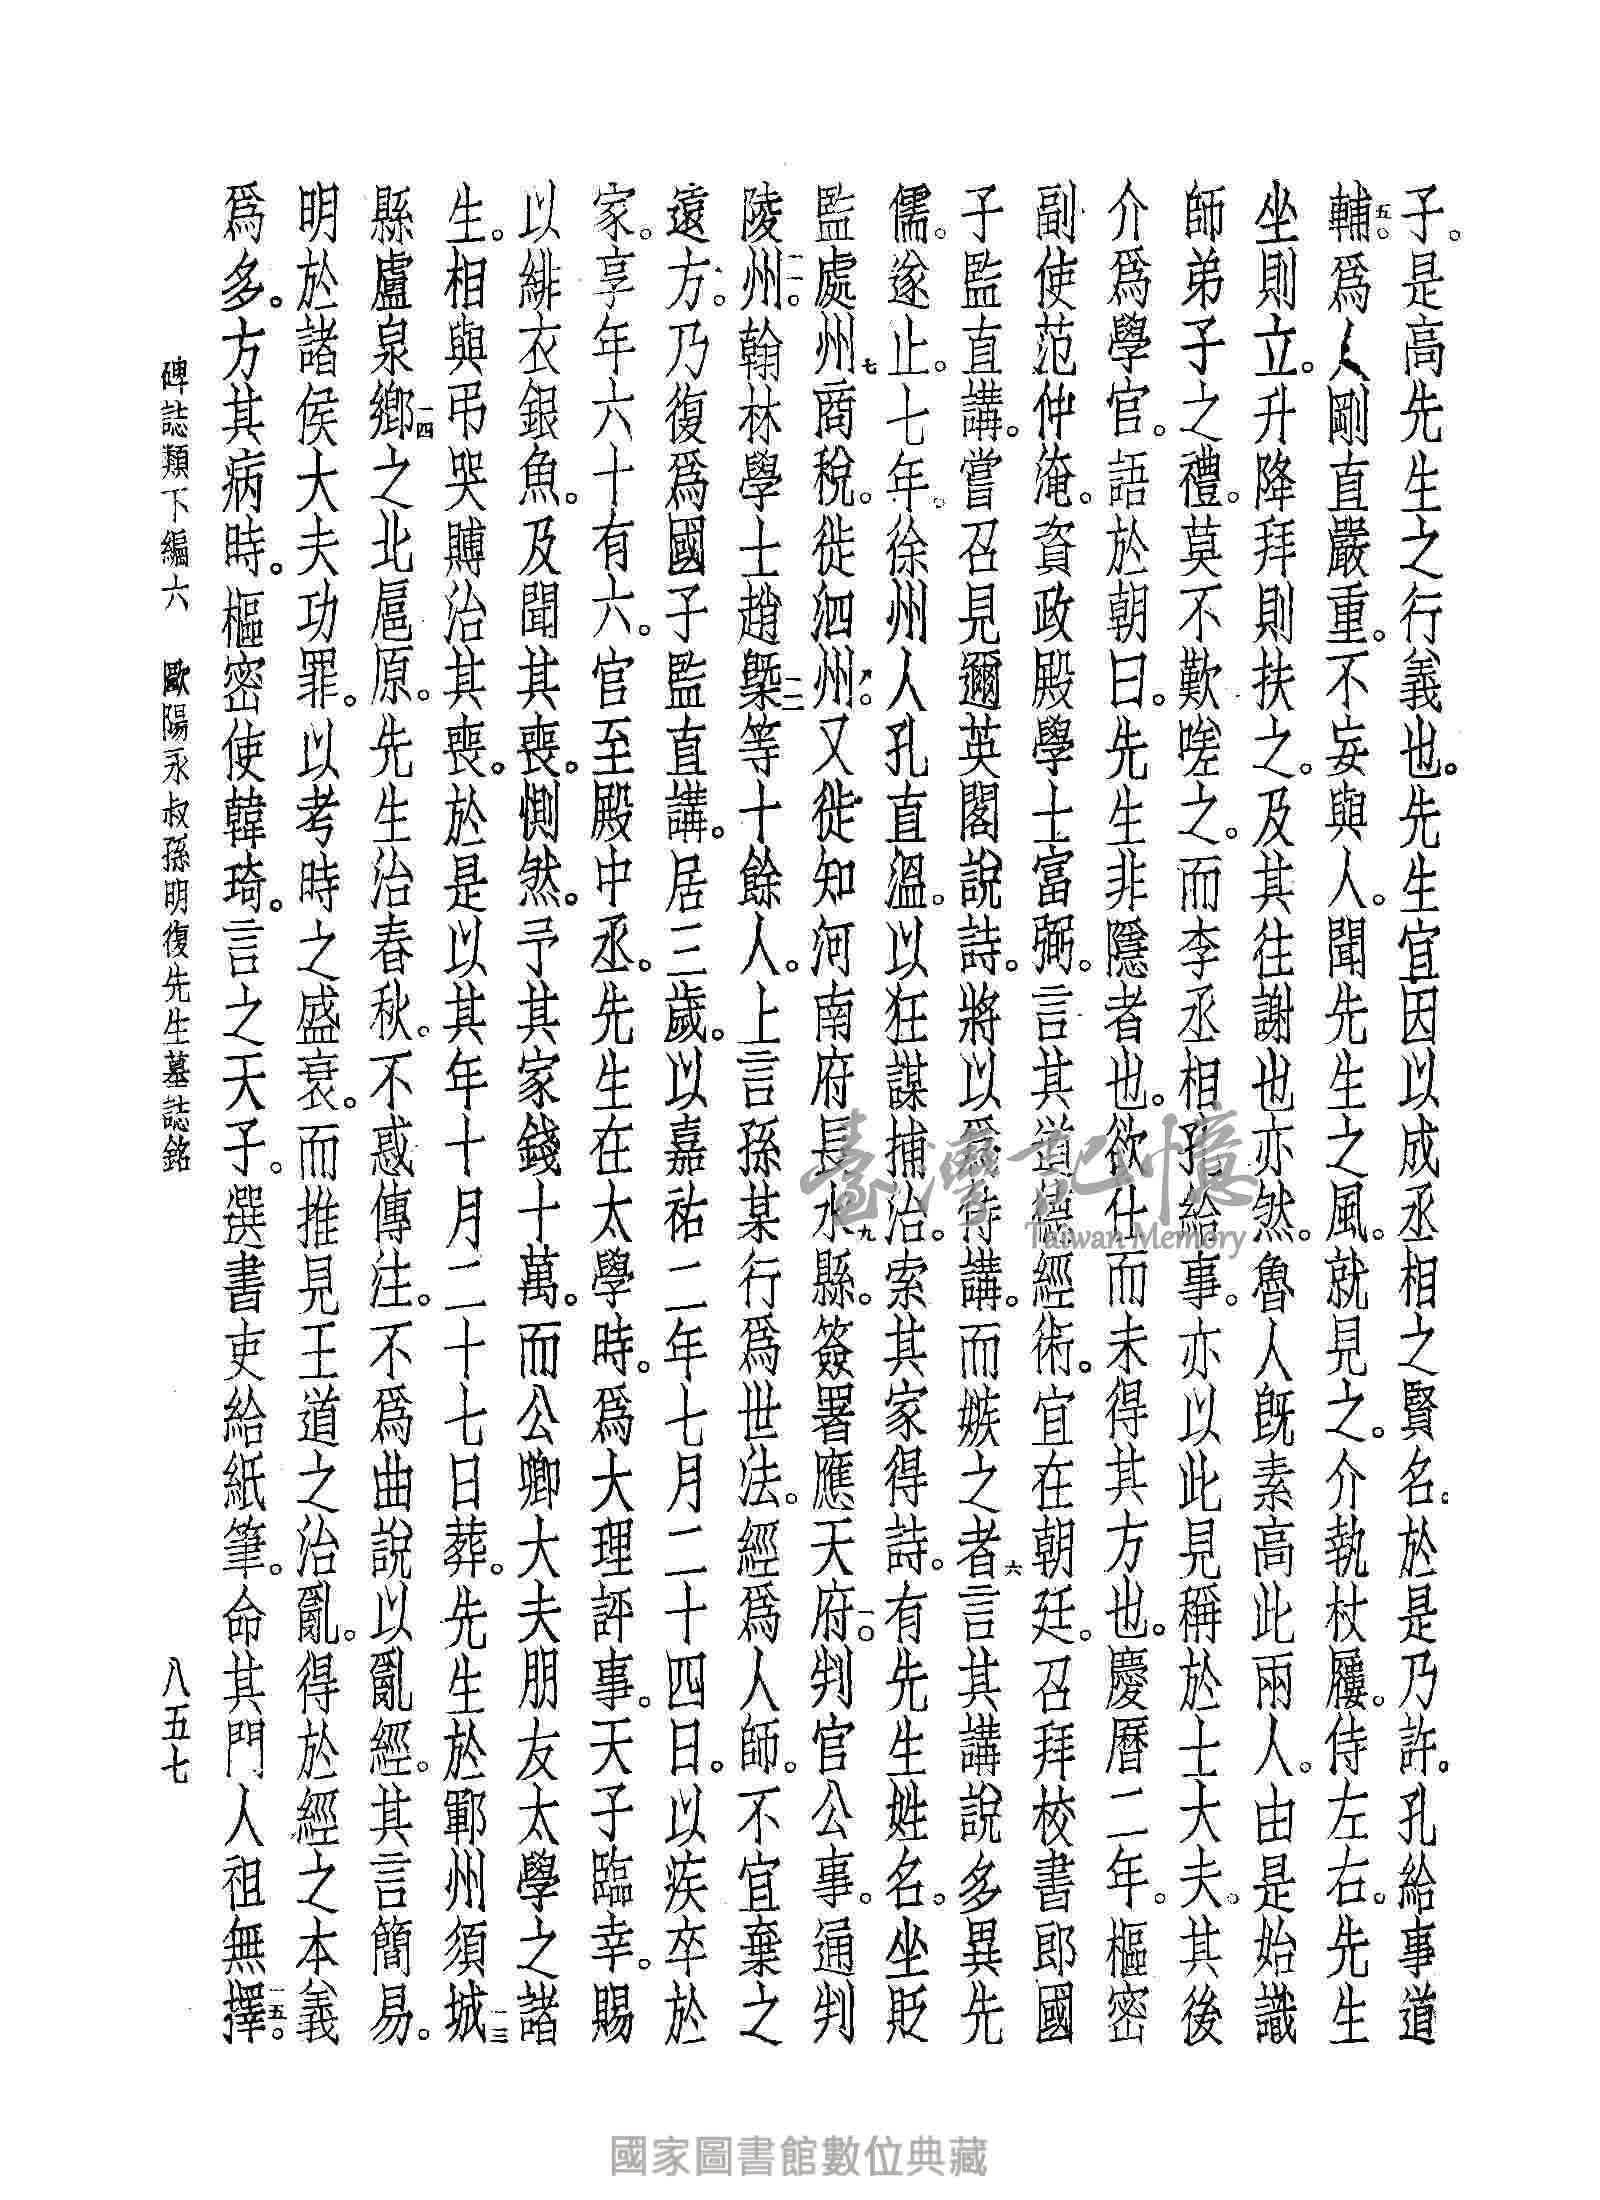 子。是高先生之行義也。先生宜因以成丞相之賢名。於是乃許。孔給事道
輔五。爲人剛直嚴重。不妄與人。聞先生之風。就見之。介執杖屨。侍左右。先生
坐則立。升降拜則扶之。及其往謝也亦然。魯人旣素高此兩人。由是始識
師弟子之禮。莫不歎嗟之。而李丞相孔給事。亦以此見稱於士大夫。其後
介爲學官。語於朝曰。先生非隱者也。欲仕而未得其方也。慶曆二年。樞密
副使范仲淹。資政殿學士富弼。言其道德經術。宜在朝廷。召拜校書郎國
子監直講。嘗召見邇英閣說詩。將以爲侍講。而嫉之者六言其講說多異先
儒。遂止。七年。徐州人孔直溫。以狂謀捕治。索其家得詩。有先生姓名。坐貶
監處州七商稅。徙泗州八。又徙知河南府長水九縣。簽署應天府一〇判官公事。通判
陵州一一。翰林學士趙槩一二等十餘人。上言孫某行爲世法。經爲人師。不宜棄之
遠方。乃復爲國子監直講。居三歲。以嘉祐二年七月二十四日。以疾卒於
家。享年六十有六。官至殿中丞。先生在太學時。爲大理評事。天子臨幸。賜
以緋衣銀魚。及聞其喪。惻然。予其家錢十萬。而公卿大夫朋友太學之諸
生。相與弔哭賻治其喪。於是以其年十月二十七日葬。先生於鄆州須城一三
縣盧泉鄉一四之北扈原。先生治春秋。不惑傳注。不爲曲說以亂經。其言簡易。
明於諸侯大夫功罪。以考時之盛衰。而推見王道之治亂。得於經之本義
爲多。方其病時。樞密使韓琦。言之天子。選書吏給紙筆。命其門人祖無擇一五。
碑誌類下編六　歐陽永叔孫明復先生墓誌銘　八五七
臺灣記憶
Taiwan Memory
國家圖書館數位典藏